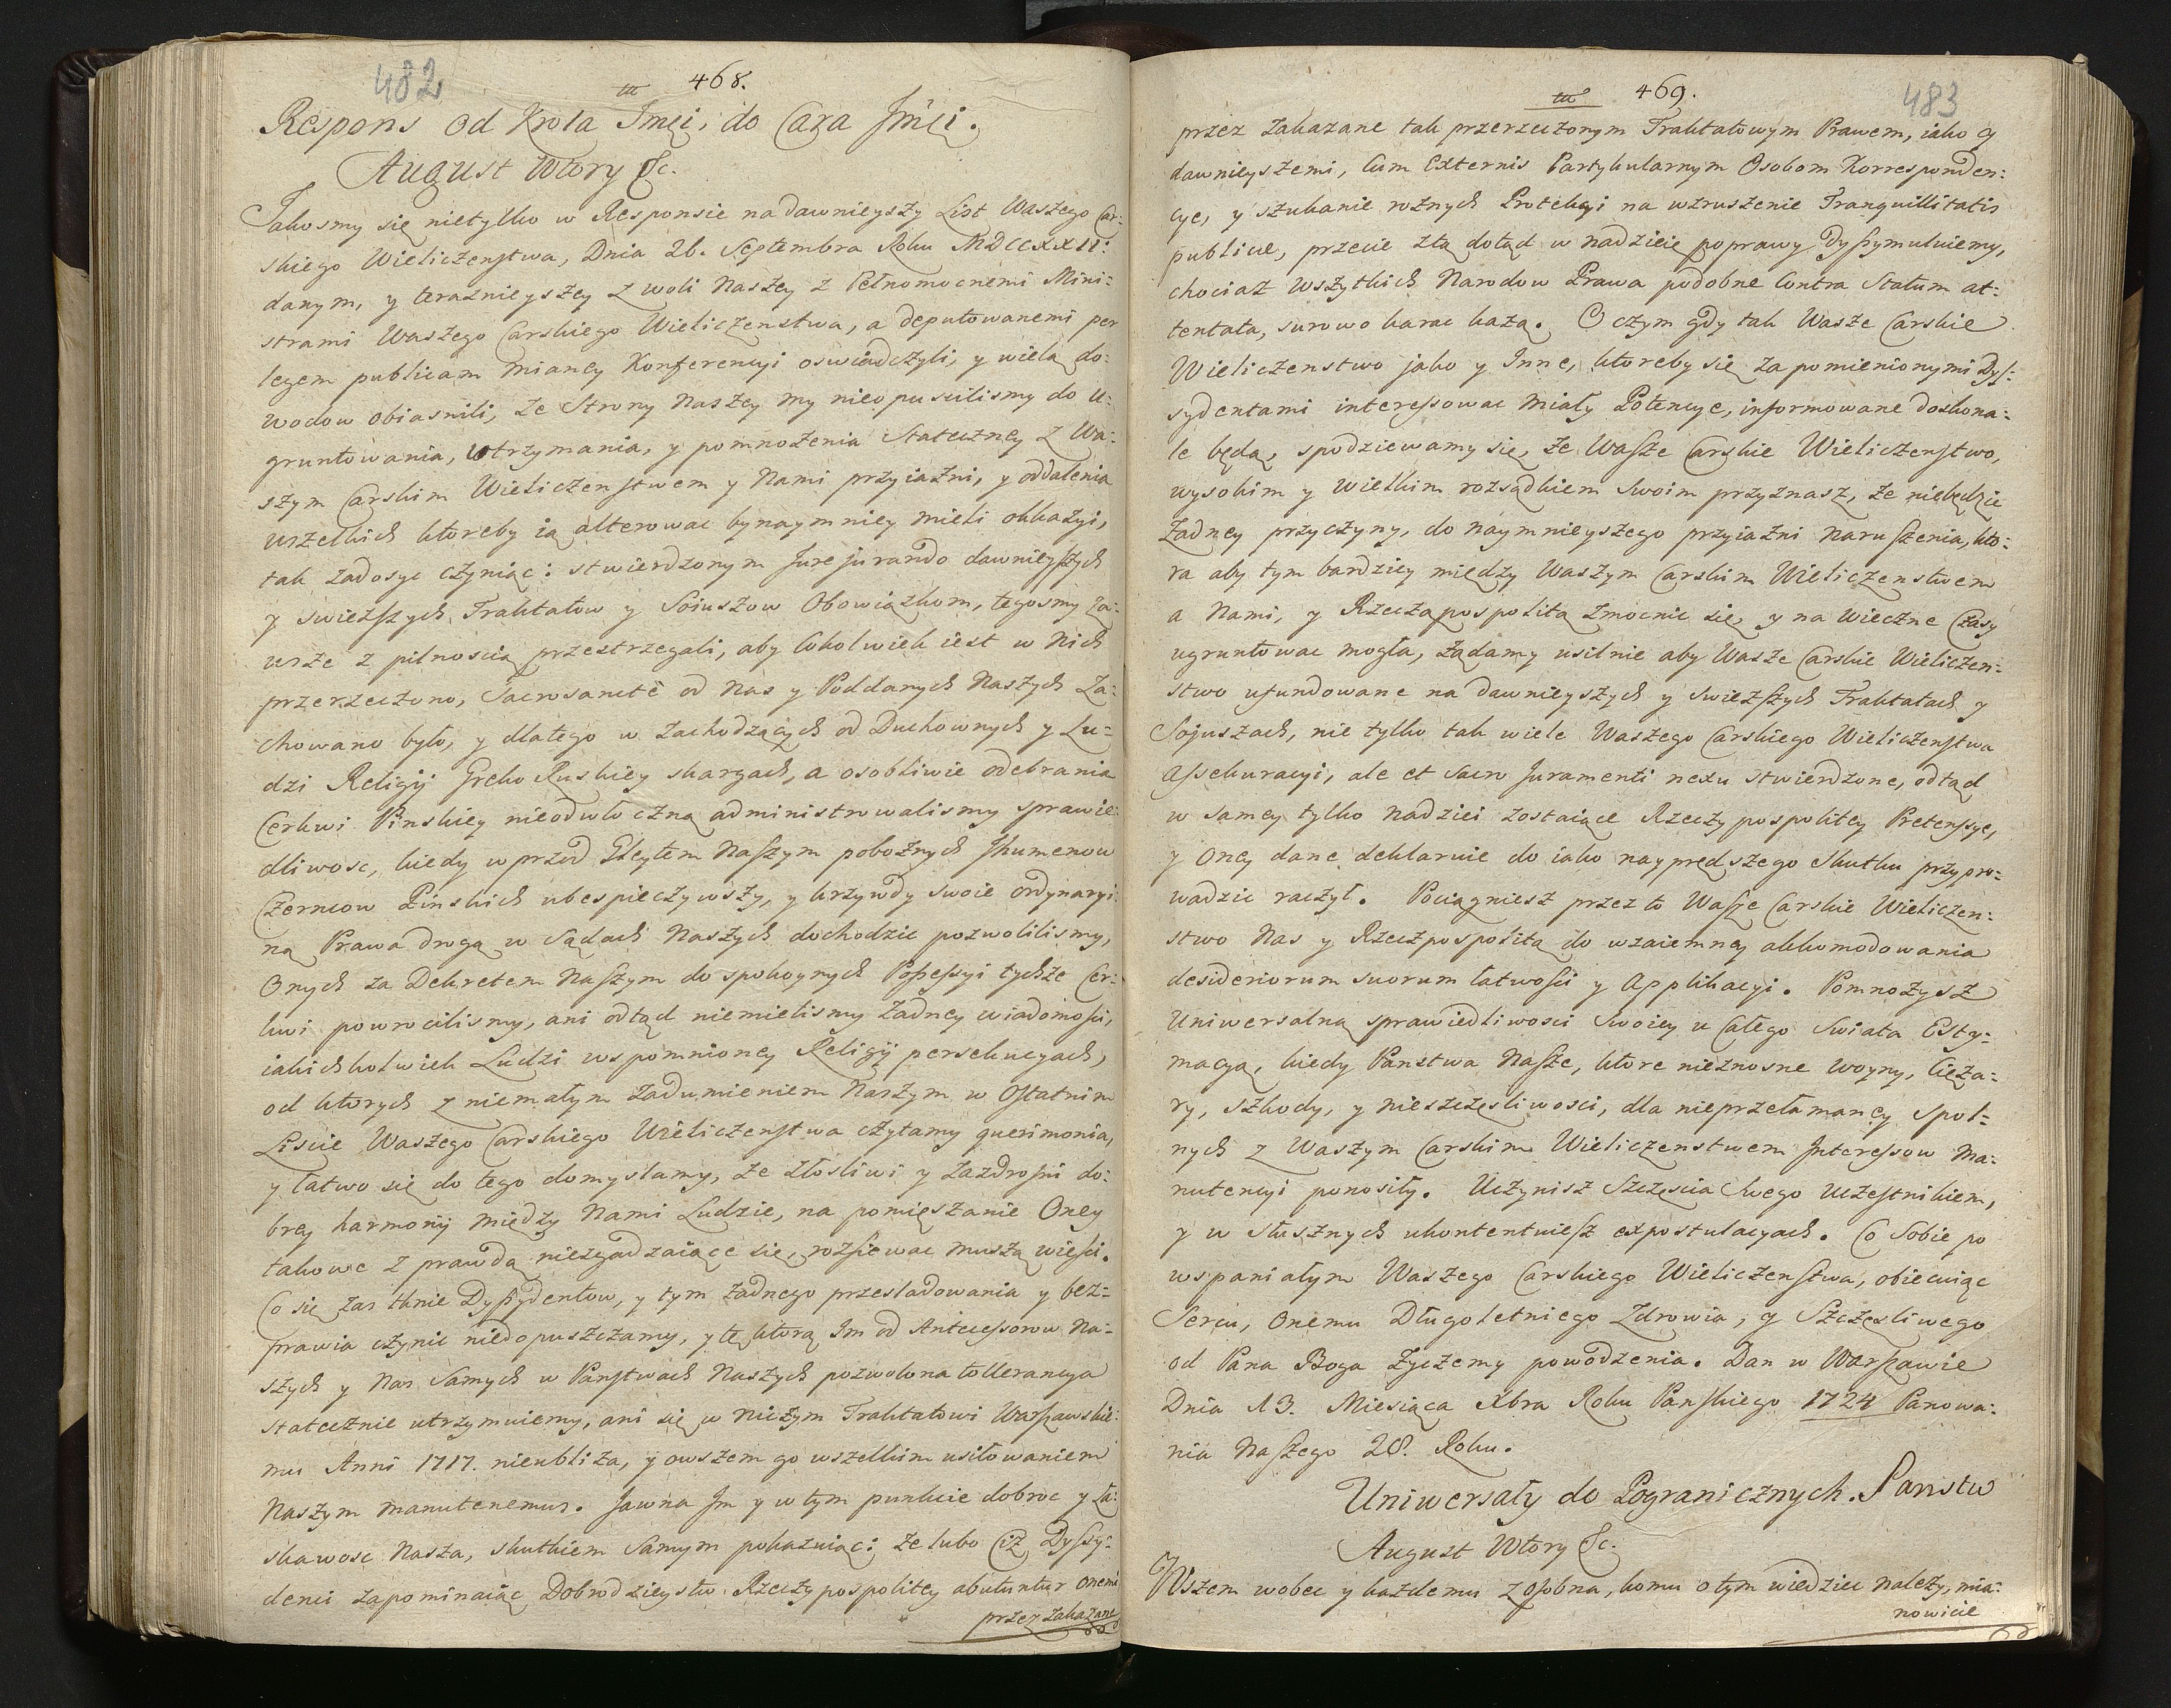 482
468.
Respons od Krola Jmći, do Cara Jmći.
August Wtory &c.
Jakosmy się nietylko w Responsie na dawnieyszy List Waszego Car:
skiego Wieliczenstwa, Dnia 26. Septembra Roku MDCCXXII:
danym, y teraznieyszey z woli Naszey z Pełnomocnemi Mini:
strami Waszego Carskiego Wieliczenstwa, a deputowanemi per
legem publicam mianey Konferencyi oswiadczyli, y wielą do:
wodow obiasnili, ze Strony Naszey my nieopuscilismy do u:
gruntowania, utrzymania, y pomnożenia Stateczney z Wa:
szym Carskim Wieliczenstwem y Nami przyiazni, y oddalenia
wszelkich ktoreby ią alterowac bynaymniey mieli okkazyi,
tak zadosyc czyniąc: stwierdzonym Jurejurando dawnieyszych
y swieższych Traktatow y Soiuszow Obowiązkom, tegosmy za:
wsze z pilnoscią przestrzegali, aby Cokolwiek iest w Nich
przerzeczono, Sacrosancte od Nas y Poddanych Naszych Za:
chowano było, y dlatego w zachodzących od Duchownych y Lu:
dzi Religij Greko Ruskiey skargach, a osobliwie odebrania
Cerkwi Pinskiey nieodwłoczną administrowalismy sprawie:
dliwosc, kiedy wprzod Gleytem Naszym pobożnych Jhumenow
Czerncow Pinskich ubespieczywszy, y krzywdy swoie ordynaryi:
ną Prawa drogą w Sądach Naszych dochodzic pozwolilismy,
Onych za Dekretem Naszym do spokoynych Possessyi tychże Cer:
kwi powrocilismy, ani odtąd niemielismy żadney wiadomosci,
iakichkolwiek Ludzi wspomnioney Religij persekucyach,
od ktorych z niemałym zadumieniem Naszym w Ostatnim
Liscie Waszego Carskiego Wieliczenstwa czytamy querimonia,
y łatwo się do tego domyslamy, że złosliwi y zazdrosni do:
brey harmonij między Nami Ludzie, na pomięszanie Oney
takowe z prawdą niezgadzaiące się, rozsiewac muszą wiesci.
Co się zas tknie Dyssydentow, y tym żadnego przesladowania y bez:
prawia czynic niedopuszczamy, y tę ktorą Im od Antecessorow Na:
szych y Nas Samych w Panstwach Naszych pozwolona tollerancya
statecznie utrzymuiemy, ani się w niczym Traktatowi Warszawskie:
mu Anni 1717. nieubliża, y owszem go wszelkim usiłowaniem
Naszym manutenemus. Jawna Jm y w tym punkcie dobroc y Ła:
skawosc Nasza, skutkiem Samym pokazuiąc: że lubo Ciż Dyssy:
denci zapominaiąc Dobrodzieystw Rzeczypospolitey abutuntur onemi
przez zakazane
469.
483
przez zakazane tak przerzeczonym Traktatowym Prawem, iako y
dawnieyszemi, Cum Externis Partykularnym Osobom Korresponden:
cye, y szukanie rożnych Protekcyi na wzruszenie Tranquillitatis
publicæ, przecie złą dotąd w nadzieię poprawy dyssymuluiemy,
chociaż Wszytkich Narodow Prawa podobne Contra Statum at:
tentata, surowo karac każą. O czym gdy tak Wasze Carskie
Wieliczenstwo jako y Inne, ktoreby się za pomienionymi Dys:
sydentami interessowac miały Potencye, informowane doskona:
le będą, spodziewamy się, że Wasze Carskie Wieliczenstwo,
wysokim y wielkim rozsądkiem Swoim przyznasz, że niebędzie
żadney przyczyny, do naymnieyszego przyiazni Naruszenia, kto:
ra aby tym bardziey między Waszym Carskim Wieliczenstwem
a Nami, y Rzecząpospolitą zmocnic się, y na wieczne Czasy
ugruntowac mogła, żądamy usilnie aby Wasze Carskie Wieliczen:
stwo ufundowane na dawnieyszych y Swieższych Traktatach y
Sojuszach, nie tylko tak wiele Waszego Carskiego Wieliczenstwa
Assekuracyi, ale et Sacro Juramenti nexu stwierdzone, odtąd
w samey tylko nadziei zostaiące Rzeczypospolitey Pretensye,
y Oney dane deklaracie do iako nayprędszego Skutku przypro:
wadzic raczył. Pociągniesz przez to Wasze Carskie Wieliczen:
stwo Nas y Rzeczpospolitą do wzaiemney akkomodowania
desideriorum suorum łatwosci y Applikacyi. Pomnożysz
Uniwersalną sprawiedliwosci Swoiey u Całego Swiata Esty:
macyą, kiedy Panstwa Nasze, ktore nieznosne woyny, Cięża:
ry, szkody, y nieszczęsliwosci, dla nieprzełamaney spol:
nych z Waszym Carskim Wieliczenstwem Interessow Ma:
nutencyi ponosiły. Uczynisz Szczęscia Swego Uczestnikiem,
y w słusznych ukontentuiesz expostulacyach. Co Sobie po
wspaniałym Waszego Carskiego Wieliczenstwa, obiecuiąc
Sercu, Onemu Długoletniego Zdrowia, y Szczęsliwego
od Pana Boga życzemy powodzenia. Dan w Warszawie
Dnia 13. Miesiąca Xbra Roku Panskiego 1724 Panowa:
nia Naszego 28. Roku.
Uniwersały do Pogranicznych Panstw
August Wtory &c.
Wszem wobec y każdemu zosobna, komu o tym wiedziec należy, mia:
nowicie